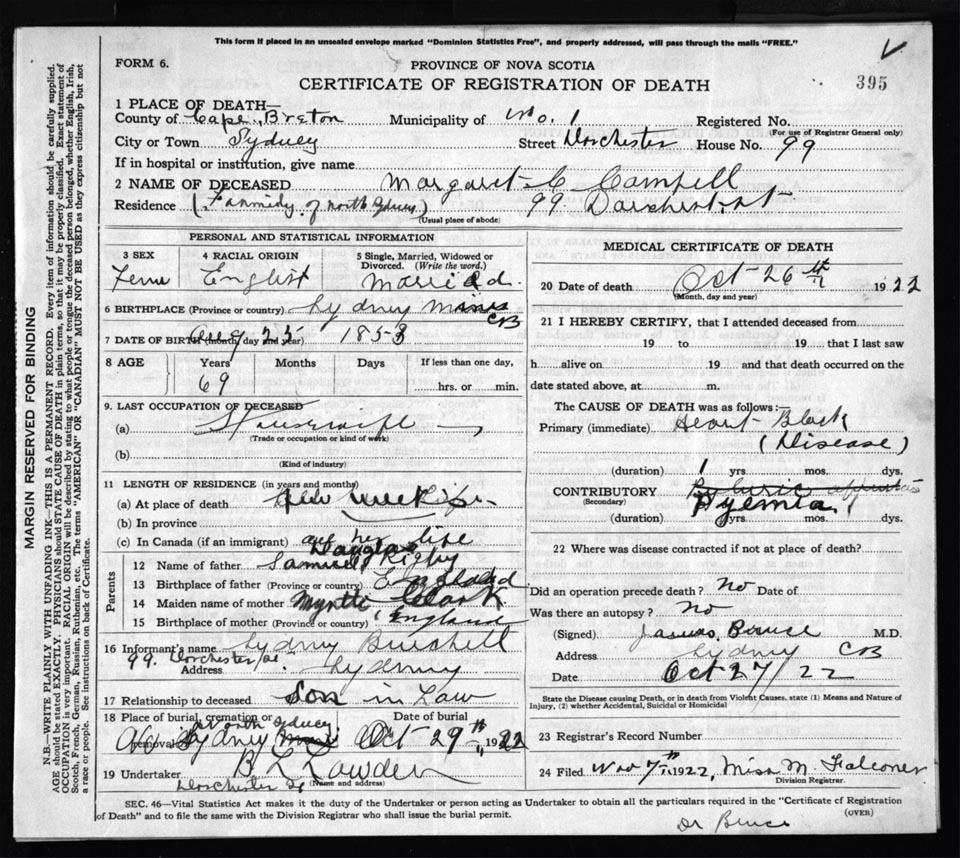 This form if placed in an unsealed envelope marked "Dominion Statistics Free", and properly addressed, will pass through the mails "FREE."
FORM 6.
PROVINCE OF NOVA SCOTIA
CERTIFICATE OF REGISTRATION OF DEATH
395
1 PLACE OF DEATH—
County of Cape Breton Municipality of No. 1 Registered No.
(For use of Registrar General only)
City or Town Sydney Street Dorchester House No. 99
If in hospital or institution, give name
2 NAME OF DECEASED Margaret C Campell
Residence ( of North Sydney) 99 Dorchester St
(Usual place of abode)
PERSONAL AND STATISTICAL INFORMATION
3 SEX 4 RACIAL ORIGIN 5 Single, Married, Widowed or Divorced. (Write the word.)
Fem English Married
6 BIRTHPLACE (Province or country) Sydney Mines CB
7 DATE OF BIRTH (month, day and year) Aug 25 1853
8 AGE Years Months Days If less than one day,
69 hrs. or min.
9. LAST OCCUPATION OF DECEASED
(a) Housewife
(Trade or occupation or kind of work)
(b)
(Kind of industry)
11 LENGTH OF RESIDENCE (in years and months)
(a) At place of death
(b) In province
(c) In Canada (if an immigrant) all her life
Parents
12 Name of father Samuel Douglas Rigby
13 Birthplace of father (Province or country) England
14 Maiden name of mother Myrtle Clark
15 Birthplace of mother (Province or country) England
16 Informant's name Sydney Burchell
99 Dorchester St
Address Sydney
17 Relationship to deceased Son in Law
18 Place of burial, cremation or removal Date of burial
North Sydney
Sydney Oct 29th 1922
19 Undertaker B L Lowden
Dorchester St (Name and address)
MEDICAL CERTIFICATE OF DEATH
20 Date of death Oct 26th 1922
(Month, day and year)
21 I HEREBY CERTIFY, that I attended deceased from
19 to 19 that I last saw
h alive on 19 and that death occurred on the
date stated above, at m.
The CAUSE OF DEATH was as follows:—
Primary (immediate) Heart Block
(Disease)
(duration) 1 yrs. mos. dys.
CONTRIBUTORY
(Secondary) Pyemia
(duration) yrs. mos. dys.
22 Where was disease contracted if not at place of death?
Did an operation precede death? No Date of
Was there an autopsy? no
(Signed) James Bruce M.D.
Address Sydney CB
Date Oct 27/22
State the Disease causing Death, or in death from Violent Causes, state (1) Means and Nature of Injury, (2) whether Accidental, Suicidal or Homicidal
23 Registrar's Record Number
24 Filed Nov 7th 1922, Miss M. Falconer
Division Registrar.
SEC. 46—Vital Statistics Act makes it the duty of the Undertaker or person acting as Undertaker to obtain all the particulars required in the "Certificate of Registration
of Death" and to file the same with the Division Registrar who shall issue the burial permit.
(OVER)
Dr Bruce
MARGIN RESERVED FOR BINDING
N.B.—WRITE PLAINLY WITH UNFADING INK—THIS IS A PERMANENT RECORD. Every item of information should be carefully supplied.
AGE should be stated EXACTLY. PHYSICIANS should STATE CAUSE OF DEATH in plain terms, so that it may be properly classified. Exact statement of
OCCUPATION is very important. RACIAL ORIGIN will be described by stating to what people or tongue the deceased person belonged, whether English, Irish,
Scotch, French, German, Russian, Ruthenian, etc. The terms "AMERICAN" OR "CANADIAN" MUST NOT BE USED as they express citizenship but not
a race or people. See instructions on back of Certificate.